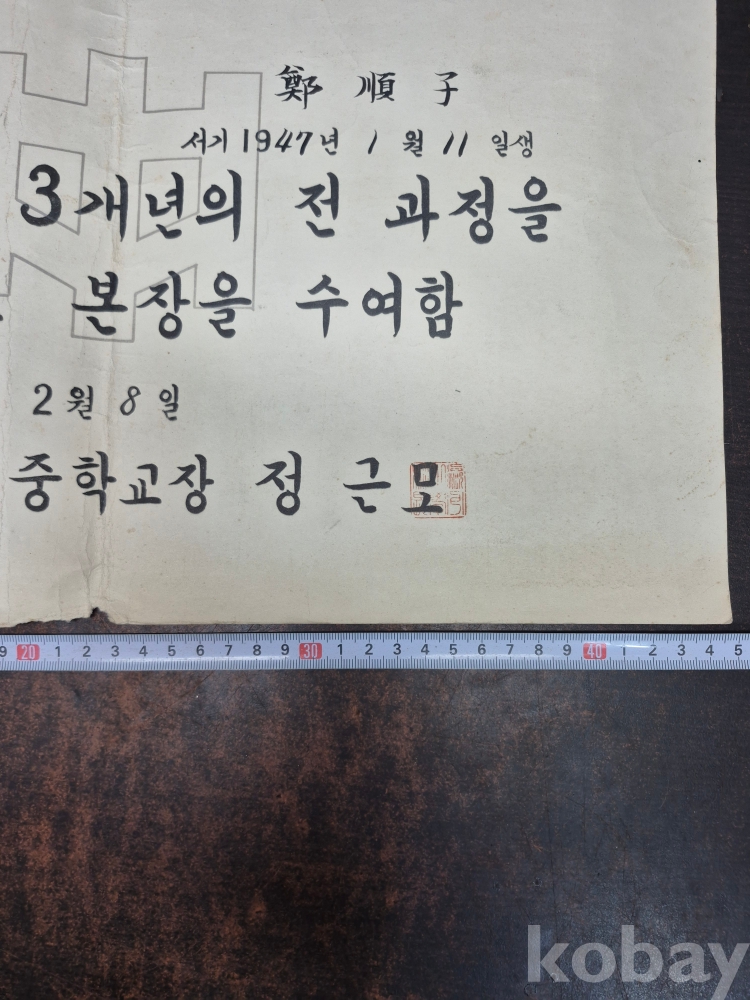 鄭 順 子
서기 1947년 1 월 11 일생
3개년의 전 과정을
본장을 수여함
2월 8일
중학교장 정 근 모
9 20 1 2 3 4 5 6 7 8 9 30 1 2 3 4 5 6 7 8 9 40 1 2 3 4 5
kobay